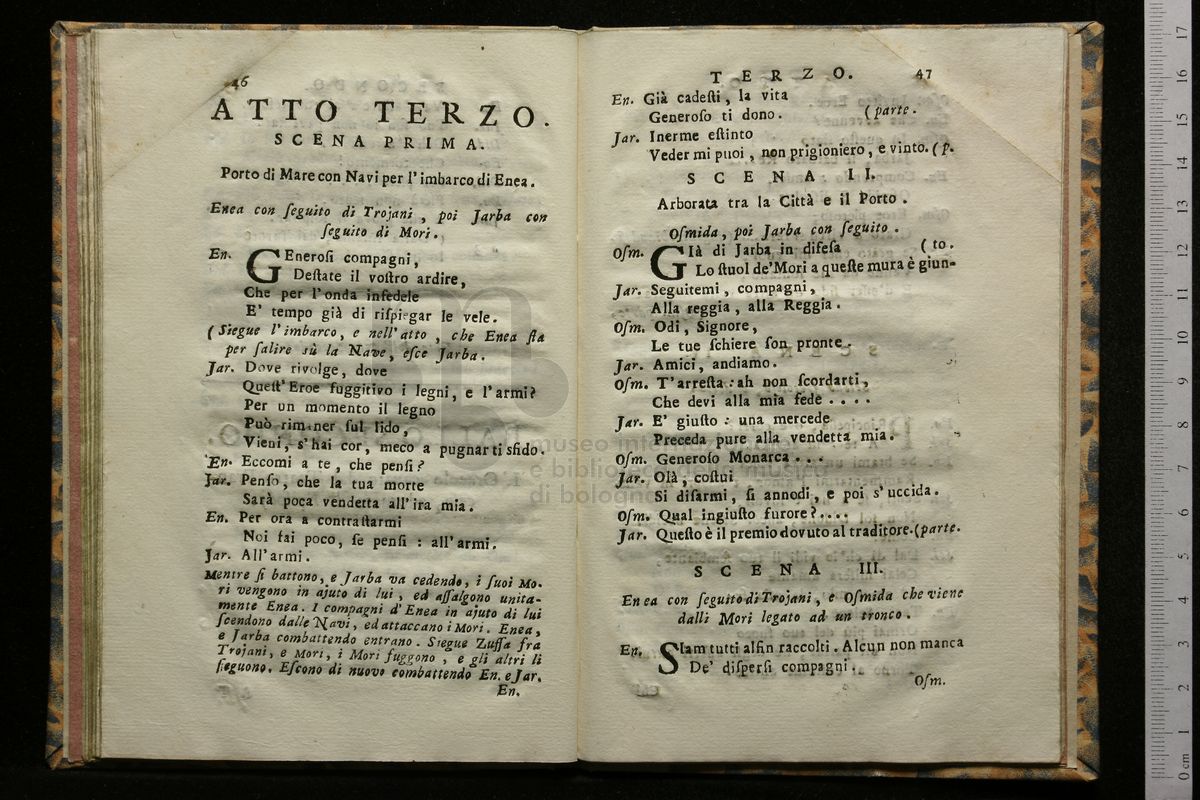 46
ATTO TERZO.
SCENA PRIMA.
Porto di Mare con Navi per l'imbarco di Enea.
Enea con ſeguito di Trojani, poi Jarba con
ſeguito di Mori.
En. GEneroſi compagni,
Deſtate il voſtro ardire,
Che per l'onda infedele
E' tempo già di riſpiegar le vele.
(Siegue l'imbarco, e nell'atto, che Enea ſta
per ſalire sù la Nave, eſce Jarba.
Jar. Dove rivolge, dove
Queſt'Eroe fuggitivo i legni, e l'armi?
Per un momento il legno
Può rimaner ſul lido,
Vieni, s'hai cor, meco a pugnar ti sfido.
En. Eccomi a te, che penſi?
Jar. Penſo, che la tua morte
Sarà poca vendetta all'ira mia.
En. Per ora a contraſtarmi
Noi fai poco, ſe penſi : all'armi.
Jar. All'armi.
Mentre ſi battono, e Jarba va cedendo, i ſuoi Mo-
ri vengono in ajuto di lui, ed aſſalgono unita-
mente Enea. I compagni d'Enea in ajuto di lui
ſcendono dalle Navi, ed attaccano i Mori. Enea,
e Jarba combattendo entrano. Siegue Zuffa fra
Trojani, e Mori, i Mori fuggono, e gli altri li
ſieguono. Eſcono di nuovo combattendo En. e Jar.
En.
TERZO. 47
En. Già cadeſti, la vita
Generoſo ti dono. (parte.
Jar. Inerme eſtinto
Veder mi puoi, non prigioniero, e vinto. (p.
SCENA II.
Arborata tra la Città e il Porto.
Oſmida, poi Jarba con ſeguito.
Oſm. GIà di Jarba in difeſa (to.
Lo ſtuol de'Mori a queſte mura è giun-
Jar. Seguitemi, compagni,
Alla reggia, alla Reggia.
Oſm. Odi, Signore,
Le tue ſchiere ſon pronte.
Jar. Amici, andiamo.
Oſm. T'arreſta : ah non ſcordarti,
Che devi alla mia fede ....
Jar. E' giuſto : una mercede
Preceda pure alla vendetta mia.
Oſm. Generoſo Monarca ...
Jar. Olà, coſtui
Si diſarmi, ſi annodi, e poi s'uccida.
Oſm. Qual ingiuſto furore?....
Jar. Queſto è il premio dovuto al traditore. (parte.
SCENA III.
Enea con ſeguito di Trojani, e Oſmida che viene
dalli Mori legato ad un tronco.
En. SIam tutti alfin raccolti. Alcun non manca
De' diſperſi compagni.
Oſm.